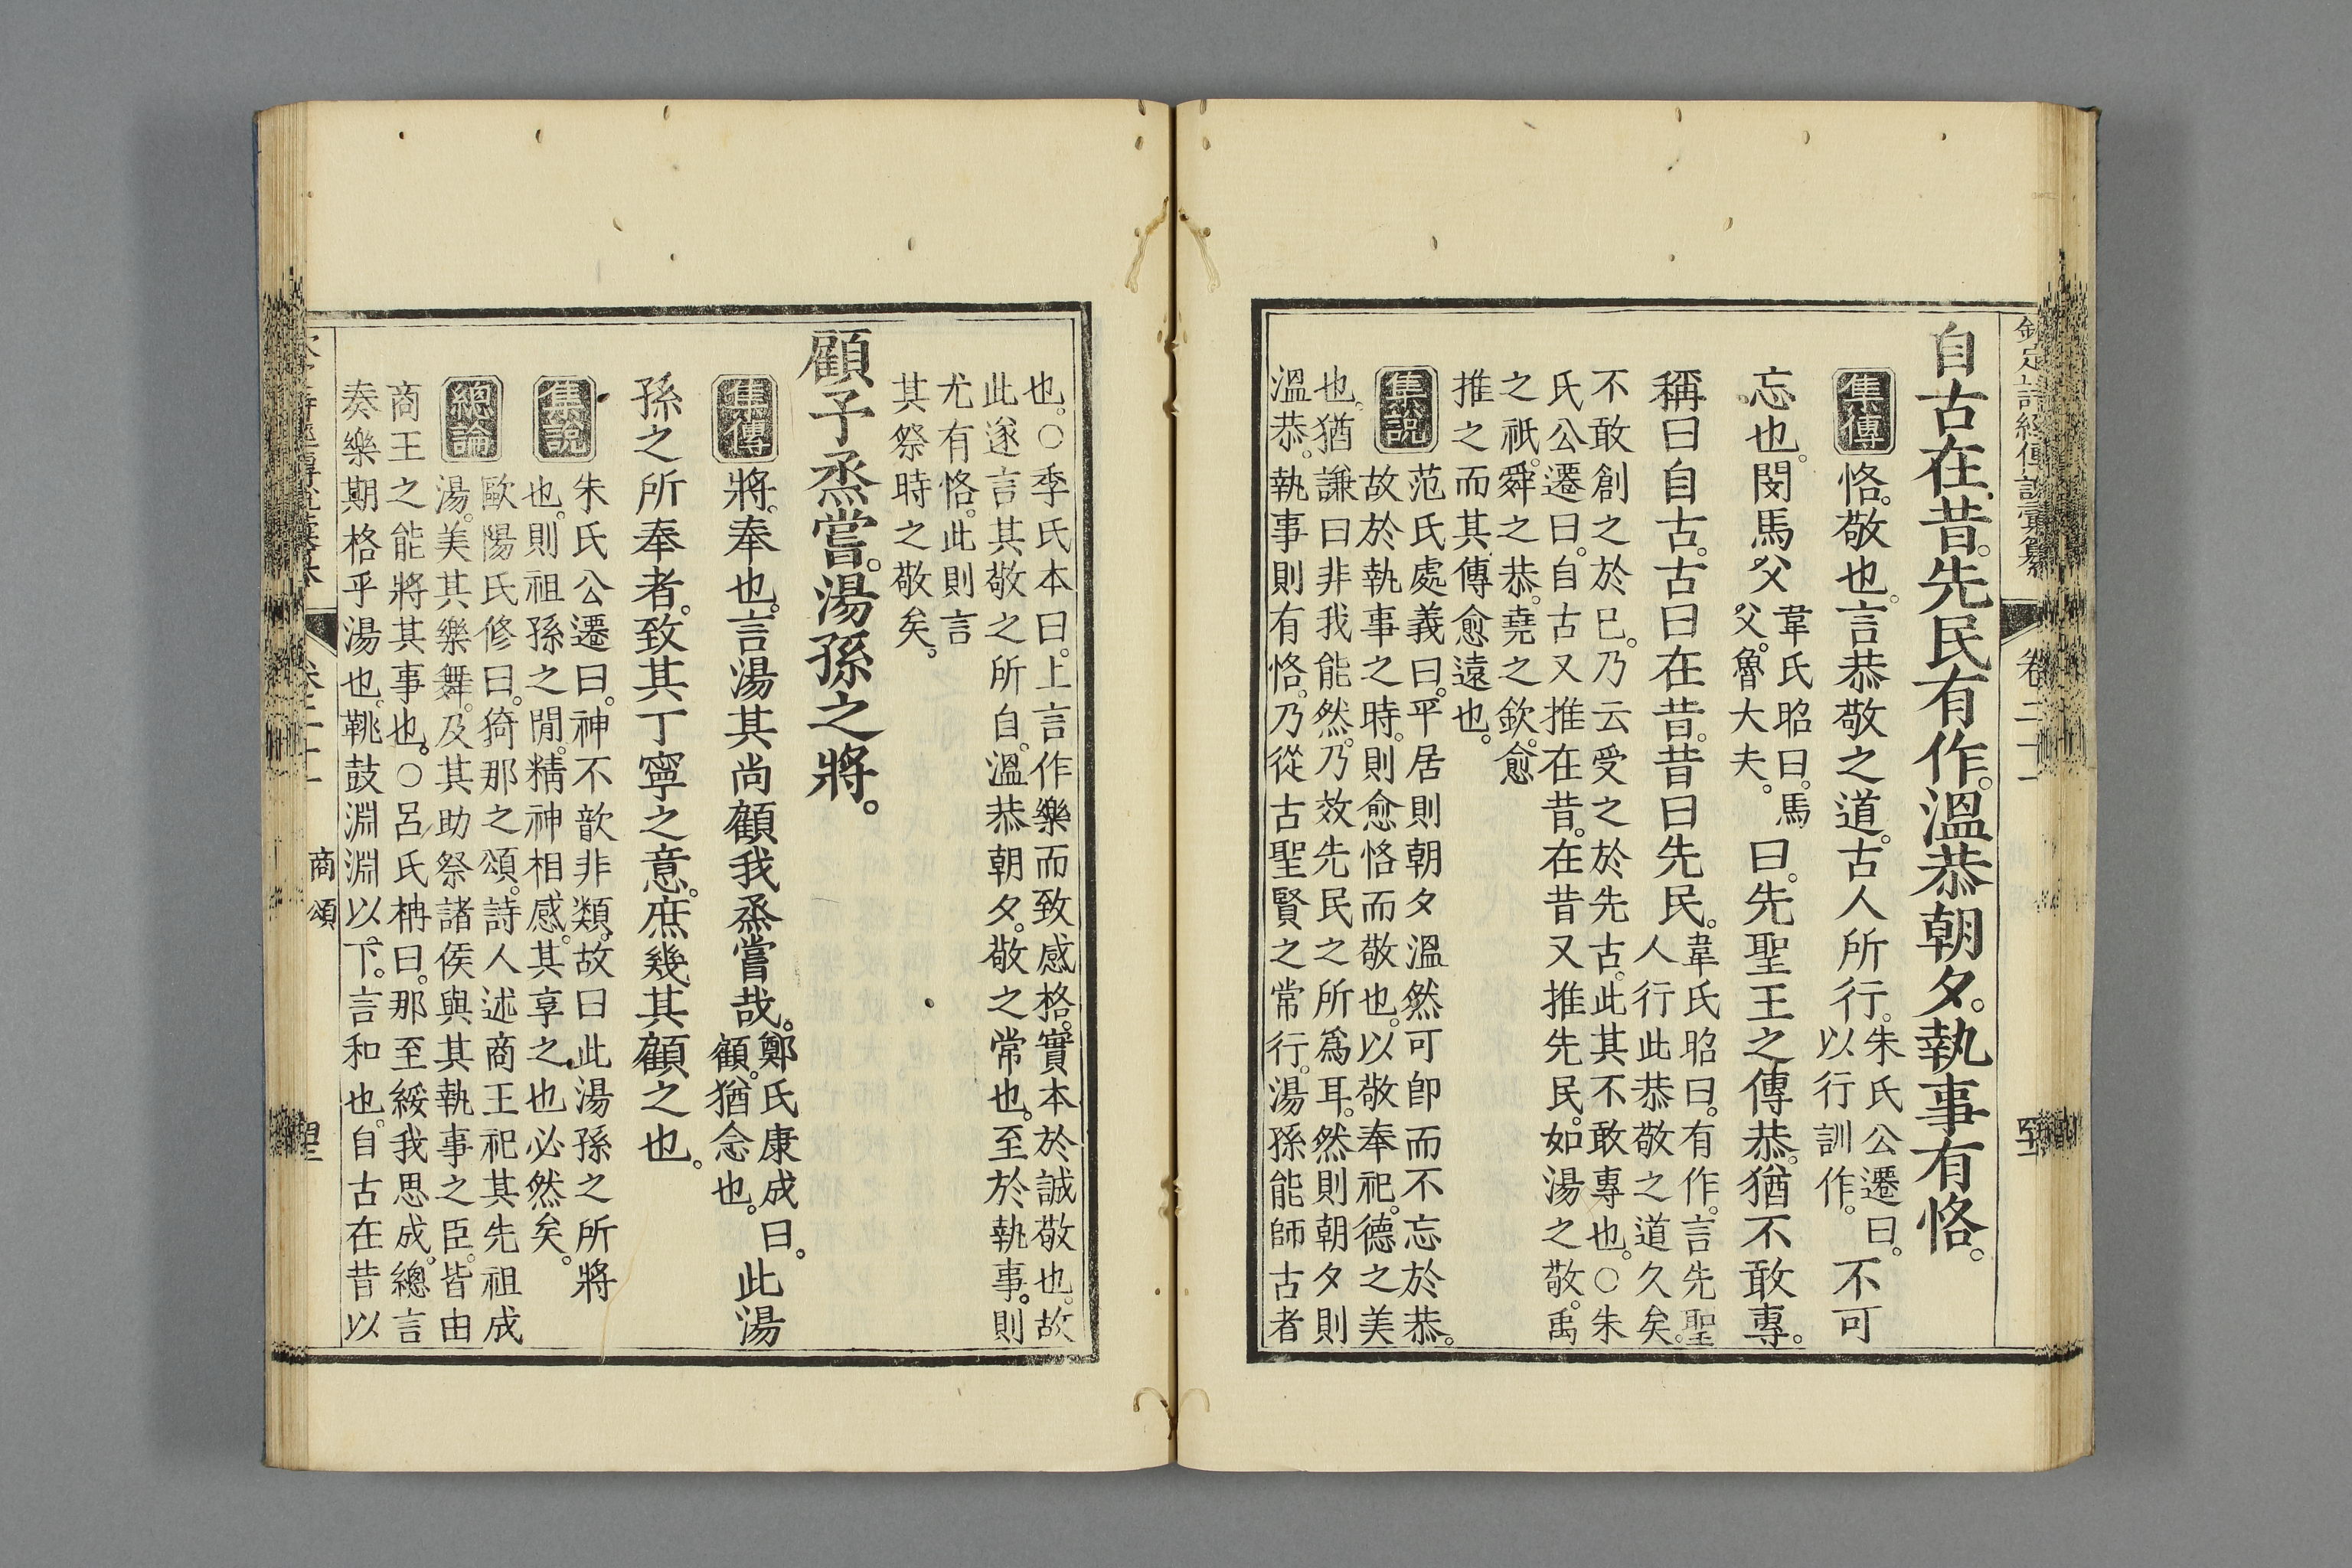 欽定詩經傳說彙纂 卷二十一
自古在昔。先民有作。溫恭朝夕。執事有恪。
集傳 恪。敬也。言恭敬之道。古人所行。朱氏公遷曰。以行訓作。不可
忘也。閔馬父韋氏昭曰。馬父。魯大夫。曰。先聖王之傳恭。猶不敢專。
稱曰自古。古曰在昔。昔曰先民。韋氏昭曰。有作。言先聖人行此恭敬之道久矣。
不敢創之於已。乃云受之於先古。此其不敢專也。○朱
氏公遷曰。自古又推在昔。在昔又推先民。如湯之敬。禹
之祇。舜之恭。堯之欽。愈
推之而其傳愈遠也。
集說 范氏處義曰。平居則朝夕溫然可卽而不忘於恭。
故於執事之時。則愈恪而敬也。以敬奉祀。德之美
也。猶謙曰非我能然。乃效先民之所爲耳。然則朝夕則
溫恭。執事則有恪。乃從古聖賢之常行。湯孫能師古者
也。○季氏本曰。上言作樂而致感格。實本於誠敬也。故
此遂言其敬之所自。溫恭朝夕。敬之常也。至於執事。則
尤有恪。此則言
其祭時之敬矣。
顧予烝嘗。湯孫之將。
集傳 將。奉也。言湯其尚顧我烝嘗哉。鄭氏康成曰。顧。猶念也。此湯
孫之所奉者。致其丁寧之意。庶幾其顧之也。
集說 朱氏公遷曰。神不歆非類。故曰此湯孫之所將
也。則祖孫之閒。精神相感。其享之也必然矣。
總論 歐陽氏修曰。猗那之頌。詩人述商王祀其先祖成
湯。美其樂舞。及其助祭諸侯與其執事之臣。皆由
商王之能將其事也。○呂氏柟曰。那至綏我思成。總言
奏樂期格乎湯也。鞉鼓淵淵以下。言和也。自古在昔以
商頌